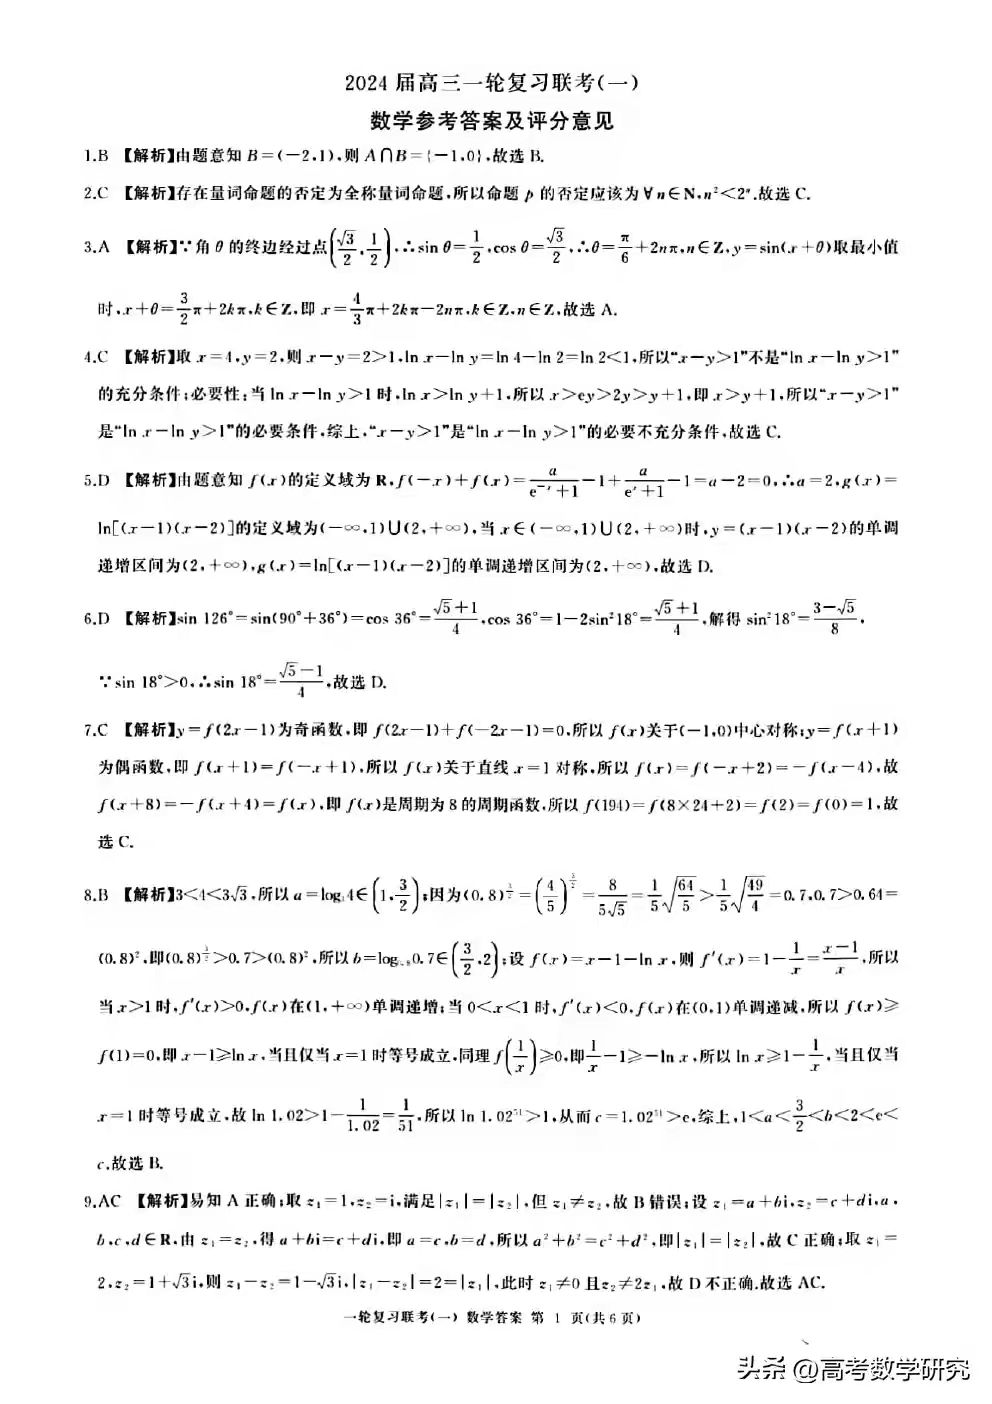 2024 届高三一轮复习联考(一)
数学参考答案及评分意见
1.B 【解析】由题意知 B=(-2,1),则 A∩B={-1,0},故选 B.
2.C 【解析】存在量词命题的否定为全称量词命题,所以命题 p 的否定应该为 ∀n∈N,n²<2ⁿ.故选 C.
3.A 【解析】∵角 θ 的终边经过点(√3/2,1/2),∴sin θ=1/2,cos θ=√3/2,∴θ=π/6+2nπ,n∈Z,y=sin(x+θ)取最小值
时,x+θ=3/2π+2kπ,k∈Z,即 x=4/3π+2kπ-2nπ,k∈Z,n∈Z,故选 A.
4.C 【解析】取 x=4,y=2,则 x-y=2>1,ln x-ln y=ln 4-ln 2=ln 2<1,所以“x-y>1”不是“ln x-ln y>1”
的充分条件;必要性:当 ln x-ln y>1 时,ln x>ln y+1,所以 x>ey>2y>y+1,即 x>y+1,所以“x-y>1”
是“ln x-ln y>1”的必要条件,综上,“x-y>1”是“ln x-ln y>1”的必要不充分条件,故选 C.
5.D 【解析】由题意知 f(x)的定义域为 R,f(-x)+f(x)=a/(e⁻ˣ+1)-1+a/(eˣ+1)-1=a-2=0,∴a=2,g(x)=
ln[(x-1)(x-2)]的定义域为(-∞,1)∪(2,+∞),当 x∈(-∞,1)∪(2,+∞)时,y=(x-1)(x-2)的单调
递增区间为(2,+∞),g(x)=ln[(x-1)(x-2)]的单调递增区间为(2,+∞),故选 D.
6.D 【解析】sin 126°=sin(90°+36°)=cos 36°=(√5+1)/4,cos 36°=1-2sin²18°=(√5+1)/4,解得 sin²18°=(3-√5)/8,
∵sin 18°>0,∴sin 18°=(√5-1)/4,故选 D.
7.C 【解析】y=f(2x-1)为奇函数,即 f(2x-1)+f(-2x-1)=0,所以 f(x)关于(-1,0)中心对称;y=f(x+1)
为偶函数,即 f(x+1)=f(-x+1),所以 f(x)关于直线 x=1 对称,所以 f(x)=f(-x+2)=-f(x-4),故
f(x+8)=-f(x+4)=f(x),即 f(x)是周期为 8 的周期函数,所以 f(194)=f(8×24+2)=f(2)=f(0)=1,故
选 C.
8.B 【解析】3<4<3√3,所以 a=log₃4∈(1,3/2);因为(0.8)^(3/2)=(4/5)^(3/2)=8/(5√5)=1/5√(64/5)>1/5√(49/4)=0.7,0.7>0.64=
(0.8)²,即(0.8)^(3/2)>0.7>(0.8)²,所以 b=log₀.₈0.7∈(3/2,2);设 f(x)=x-1-ln x,则 f′(x)=1-1/x=(x-1)/x,所以
当 x>1 时,f′(x)>0,f(x)在(1,+∞)单调递增;当 0<x<1 时,f′(x)<0,f(x)在(0,1)单调递减,所以 f(x)≥
f(1)=0,即 x-1≥ln x,当且仅当 x=1 时等号成立.同理 f(1/x)≥0,即1/x-1≥-ln x,所以 ln x≥1-1/x,当且仅当
x=1 时等号成立,故 ln 1.02>1-1/1.02=1/51,所以 ln 1.02⁵¹>1,从而 c=1.02⁵¹>e,综上,1<a<3/2<b<2<e<
c,故选 B.
9.AC 【解析】易知 A 正确;取 z₁=1,z₂=i,满足|z₁|=|z₂|,但 z₁≠z₂,故 B 错误;设 z₁=a+bi,z₂=c+di,a,
b,c,d∈R,由 z₁=z₂,得 a+bi=c+di,即 a=c,b=d,所以 a²+b²=c²+d²,即|z₁|=|z₂|,故 C 正确;取 z₁=
2,z₂=1+√3i,则 z₁-z₂=1-√3i,|z₁-z₂|=2=|z₁|,此时 z₁≠0 且z₂≠2z₁,故 D 不正确.故选 AC.
一轮复习联考(一) 数学答案 第 1 页(共 6 页)
头条 @高考数学研究